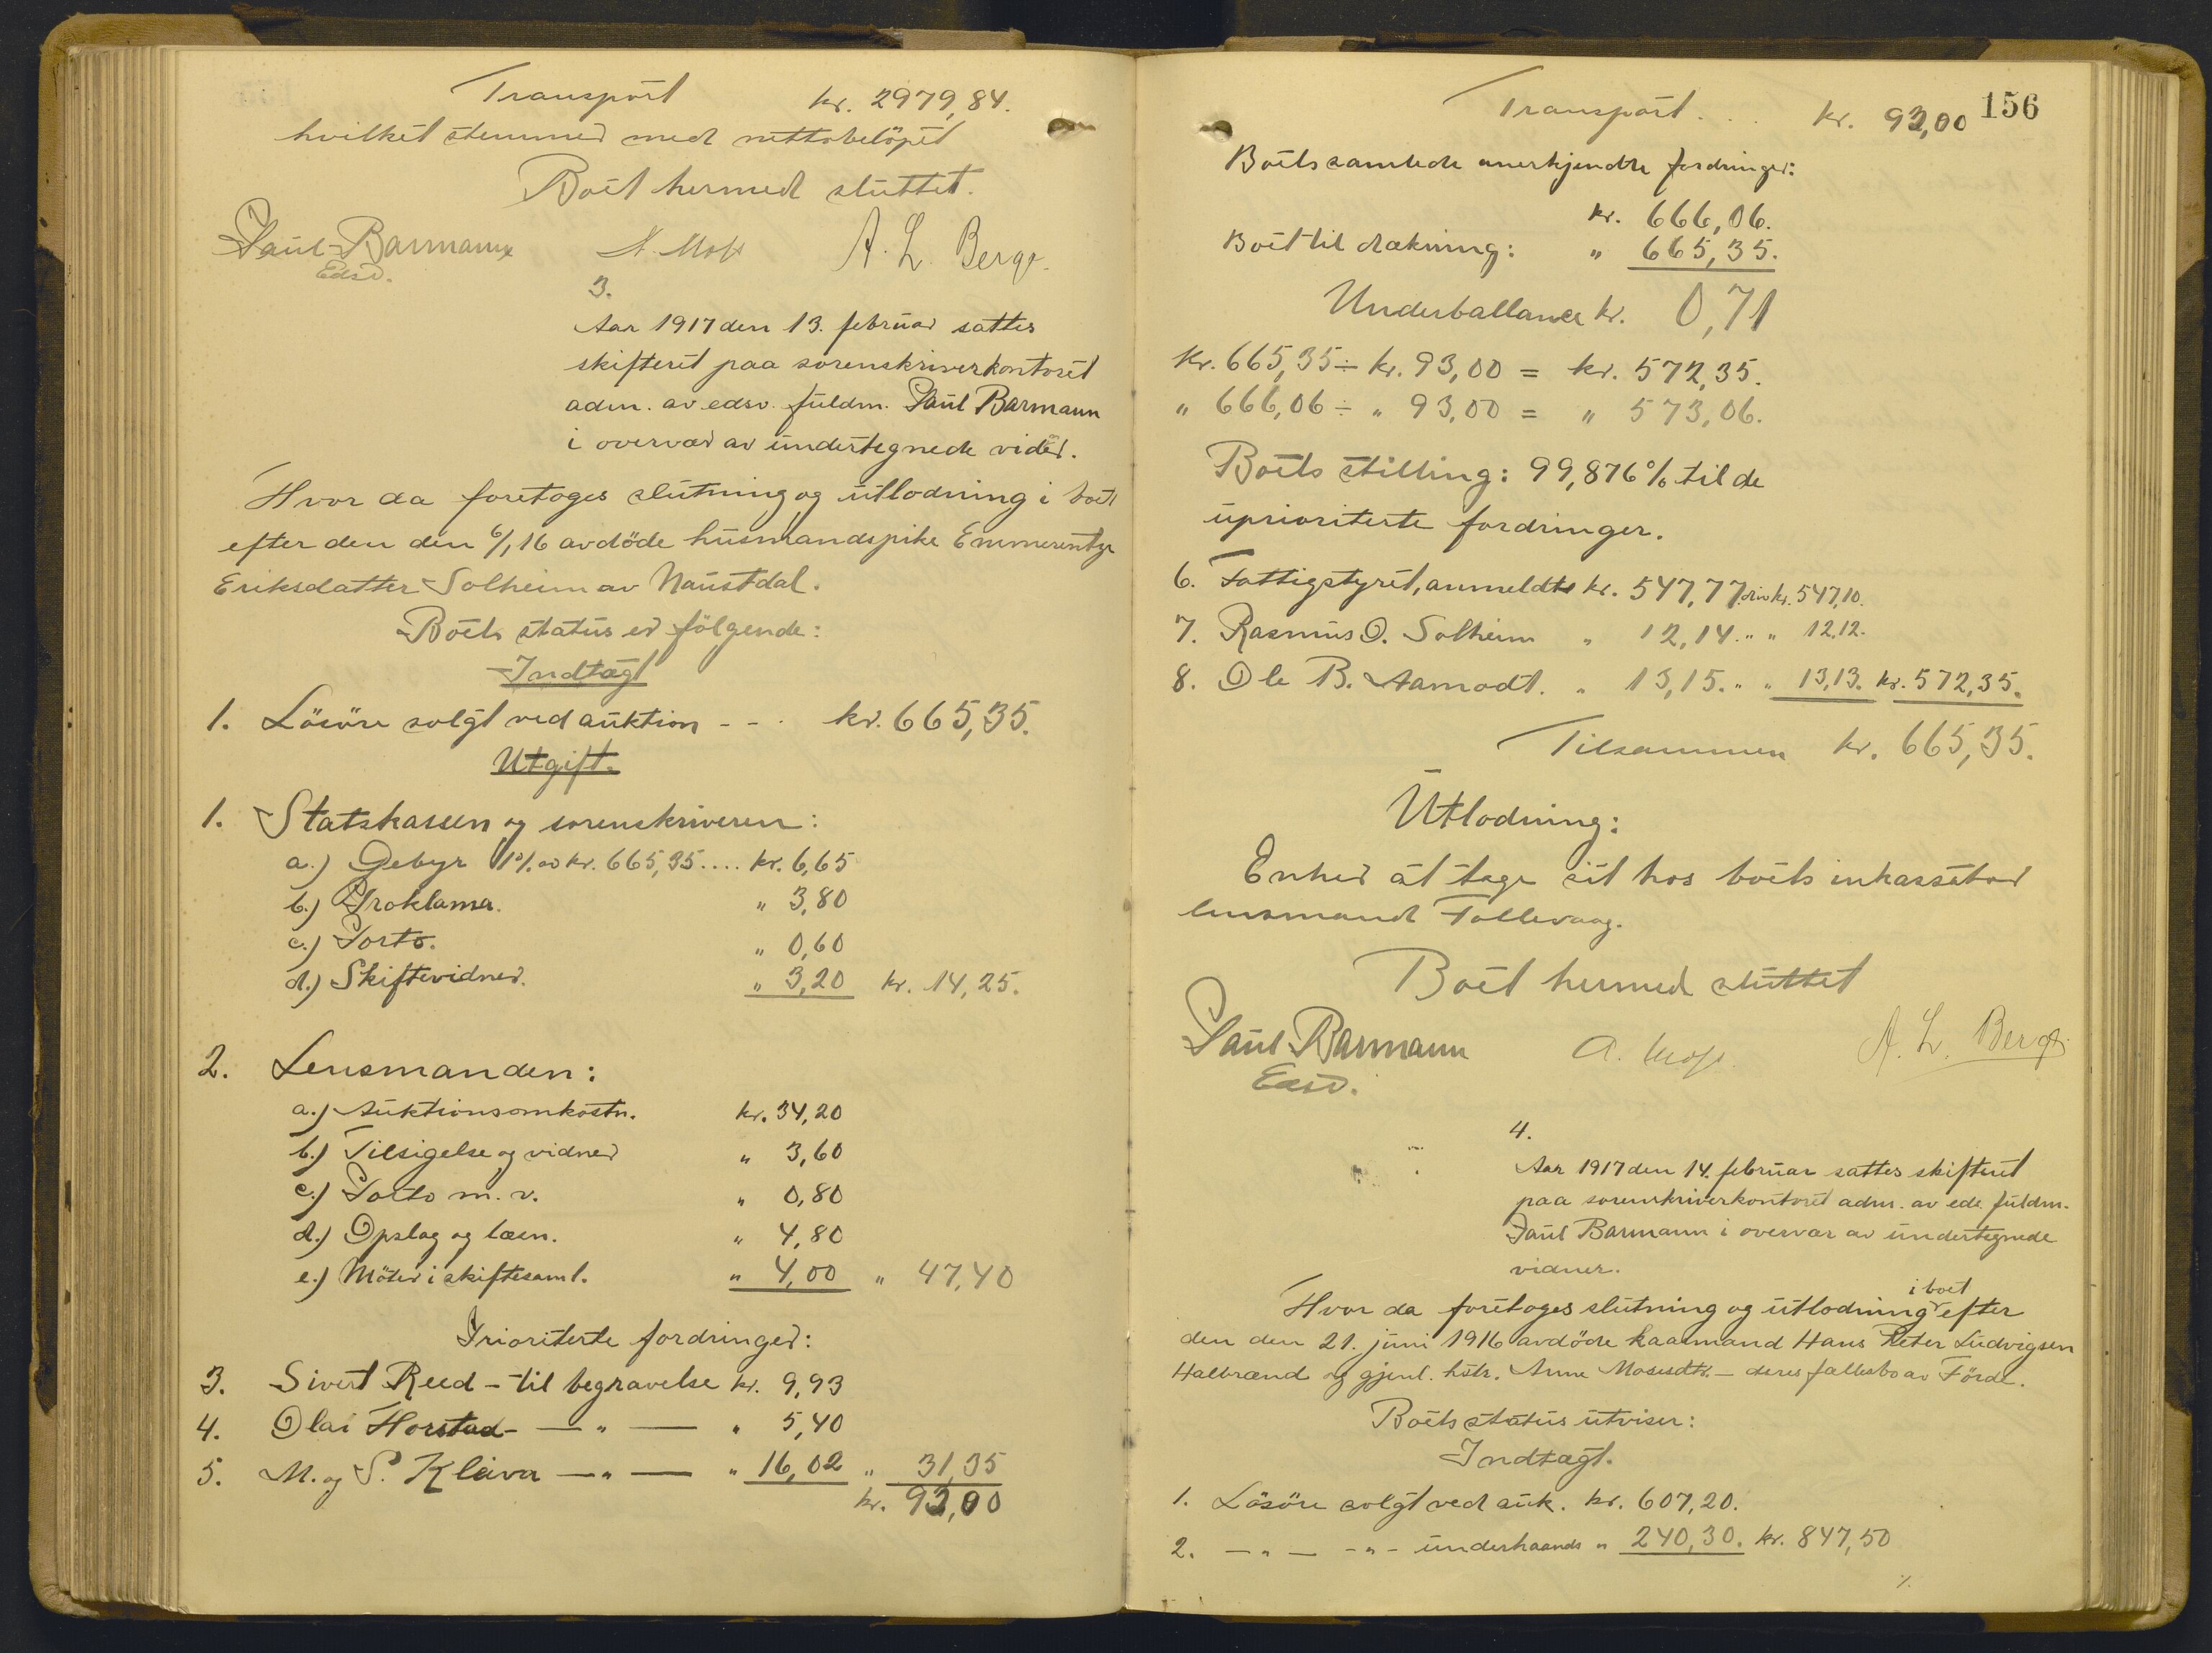 Transport kr. 2979,84.
hvilket stemmer med nettobelöpet
Boet hermed sluttet.
Paul Barmann A. Moss A. L. Berge.
Edsv.
3.
Aar 1917 den 13. februar sattes
skifteret paa sorenskriverkontoret
adm. av edsv. fuldm. Paul Barmann
i overvær av undertegnede vidner.
Hvor da foretoges slutning og utlodning i boet
efter den den 6/1 16 avdöde husmandspike Emmerentze
Eriksdatter Solheim av Naustdal.
Boets status er fölgende:
Indtægt
1. Lösöre solgt ved auktion - - . kr. 665,35.
Utgift.
1. Statskassen og sorenskriveren:
a.) Gebyr 1% av kr. 665,35.... kr. 6,65
b.) Proklama. " 3,80
c.) Porto. " 0,60
d.) Skiftevidner. " 3,20 kr. 14,25.
2. Lensmanden:
a.) Auktionsomkostn. kr. 34,20
b.) Tilsigelse og vidner " 3,60
c.) Porto m. v. " 0,80
d.) Opslag og læsn. " 4,80
e.) Möter i skiftesaml. " 4,00 " 47,40
Prioriterte fordringer:
3. Sivert Reed - til begravelse kr. 9,93
4. Olai Horstad - — " — " 5,40
5. M. og P. Kleiva — " — " 16,02 " 31,35
kr. 93,00
Transport. . . kr. 93,00 156
Boets samlede anerkjendte fordringer:
kr. 666,06.
Boet til dækning: " 665,35.
Underballance kr. 0,71
Kr. 665,35 ÷ kr. 93,00 = kr. 572,35.
" 666,06 ÷ " 93,00 = " 573,06.
Boets stilling: 99,876% til de
uprioriterte fordringer.
6. Fattigstyret, anmeldte kr. 547,77 div kr. 547,10.
7. Rasmus O. Solheim " 12,14. " " 12,12.
8. Ole B. Aamodt. " 13,15. " " 13,13. kr. 572,35.
Tilsammen kr. 665,35.
Utlodning:
Enhver at tage sit hos boets inkassator
lensmand Tollevaag.
Boet hermed sluttet
Paul Barmann A. Moss. A. L. Berge.
Edsv.
4.
Aar 1917 den 14. februar sattes skifteret
paa sorenskriverkontoret adm. av eds. fuldm.
Paul Barmann i overvær av undertegnede
vidner.
i boet
Hvor da foretoges slutning og utlodning efter
den den 21. juni 1916 avdöde kaarmand Hans Peter Ludvigsen
Halbrænd og gjenl. hstr. Anne Mosesdtr. - deres fællesbo av Förde.
Boets status utviser:
Indtægt.
1. Lösöre solgt ved auk. kr. 607,20.
2. — " — - " - underhaands " 240,30. kr. 847,50